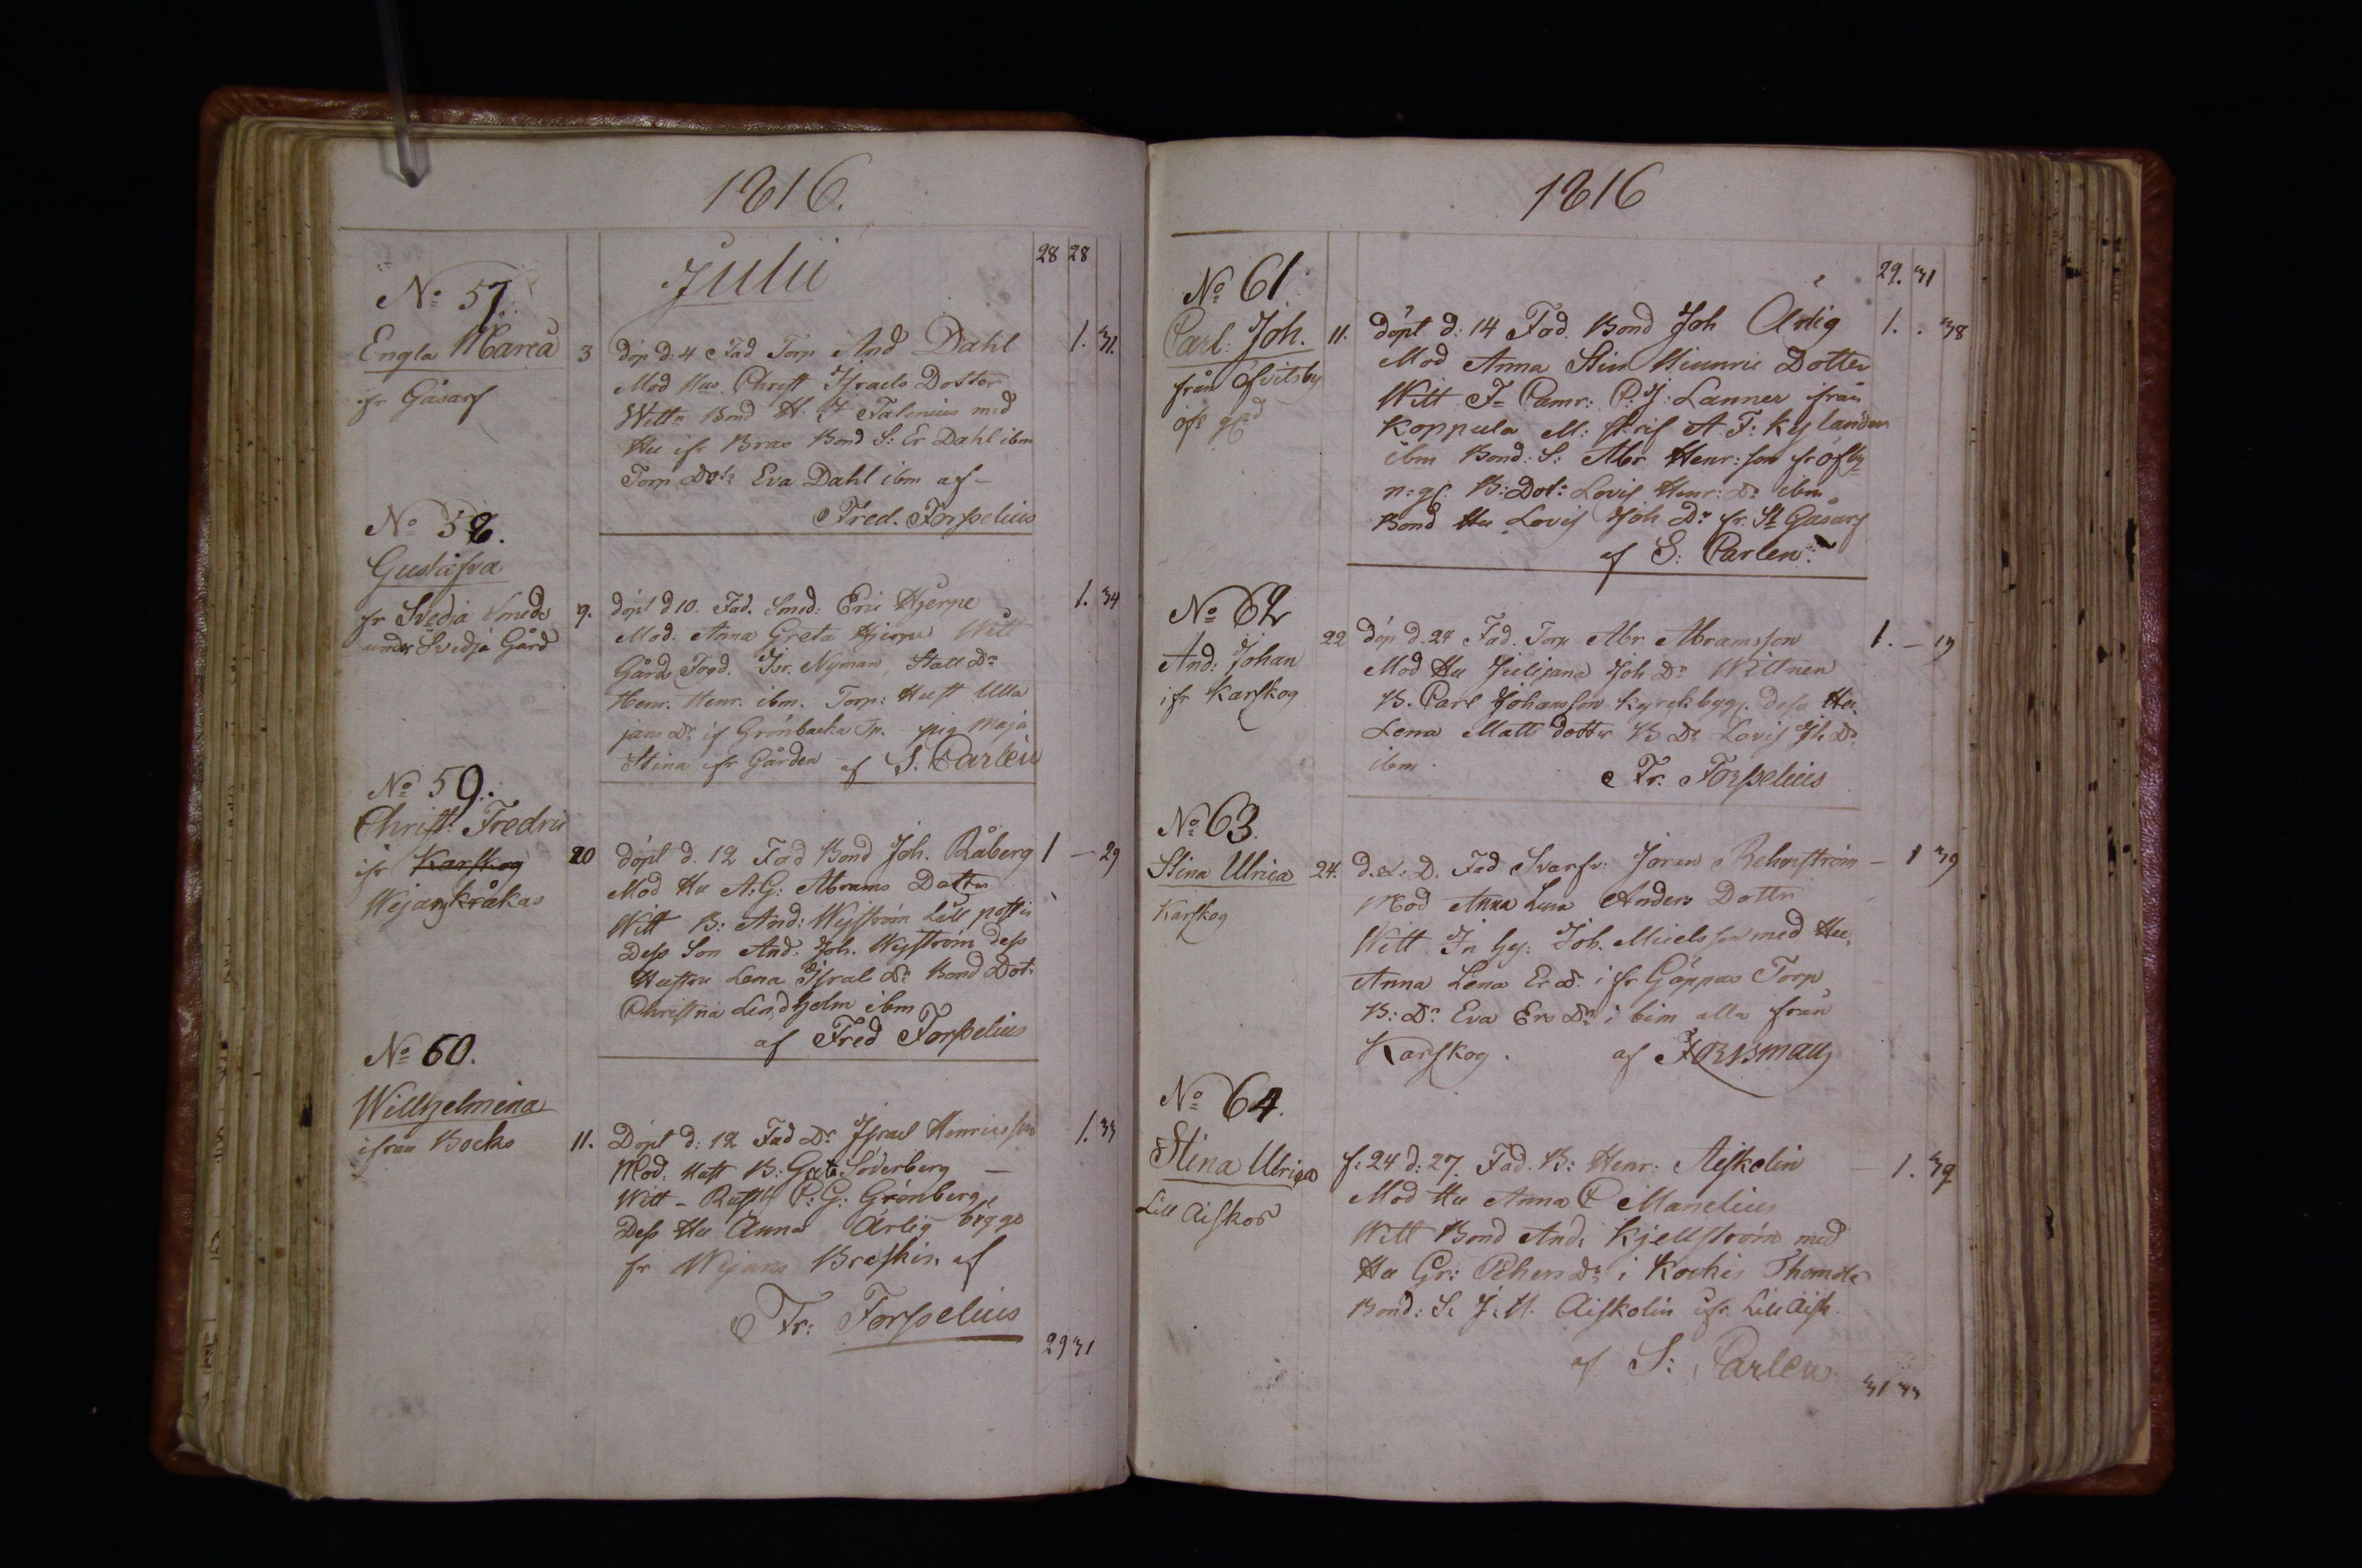 1816.
Julii
28 28
No 57.
Engla Maria
fr Gåsarf
3
döp d. 4 Fad Torp And Dahl
1. 31.
Mod Hus. Christ Israels Dotter
Wittn Bond H. J Falenius med
Hu ifr Bras Bond S: Er Dahl ibm
Torp Dotr Eva Dahl ibm af
Fred. Forsselius
No 58.
Gustafva
fr Svedja Smeds
under Svedja Gård
9.
döpt d 10. Fad. Smed: Eric Hjerpe
1. 34
Mod. Anna Greta Hjerpe Witt
Gårds Fogd. Isr. Nyman, Stall Dr
Henr. Henr. ibm. Torp: Hust Ulla
jans Dr if Grönbacka Tp. pig Maja
Stina ifr Gården af S. Carlén
No 59.
Christ: Fredric
ifr Karskog
Wejans kråkas
10
döpt d. 12 Fad Bond Joh. Råberg
1 — 29
Mod Hu A: G: Abrams Dotter
Witt B: And: Wejström Lill
Dess Son And. Joh. Wejström dess
Hustru Lena Israel Dr Bond Dotr
Christina Lindholm ibm
af Fred Forsselius
No 60.
Willhelmina
ifrån Bocks
11.
Döpt d: 12 Fad Dr Israel Henricsson
1. 33
Mod. Hust B: Gata Söderberg —
Witt - P: G: Grönberg
Dess Hu Anna Ärlig
fr Wejans Braskin af
Fr: Forsselius
29 31
1816
29. 31
No 61
Carl: Joh.
från Öfvitsby
öfr gd
11.
döpt d: 14 Fad. Bond Joh Ärlig
1. . 38
Mod Anna Stin Hinnric Dotter
Witt F= Camr: C: J: Lanner ifrån
Koppula M: skrif A. F: Kylander
ibm Bond: S: Abr Henr: son fr Öfby
n: gd. B: Dotr Lovis Henr: Dr ibm
Bond Hu Lovis Joh Dr fr. St Gåsarf
af S: Carlen:
No 62
And: Johan
ifr Karskog
22
döp d. 24 Fad. Torp Abr Abramsson
1. — 19
Mod Hu Julijana Joh Dr Wittnen
B. Carl Johansson Kyrckbyg. dess Hu.
Lena Matts dotter B Dr Lovis Joh Dr
ibm.
Fr. Forsselius
No 63.
Stina Ulrica
Karskog
24.
d. s: D. Fad Svarfv: Jöran Rehnström
— 1 39
Mod Anna Lena Anders Dottr
Witt In hys. Joh. Micelsson med Hu.
Anna Lena Er dr ifr Göppas Torp
B: Dr Eva Ers Dr ibim alla från
Karskog. af Forsman
No 64.
Stina Ulrica
Lill Aiskos
f: 24 d: 27. Fad. B: Henr: Aiskolin
— 1. 39
Mod Hu Anna C Manelius
Witt Bond And: Kjellström med
Hu Gr: Pehrs Dr i Kockis Thomsbe
Bond: S. J: H. Aiskolin ifr. Lill Aisk.
af S: Carlen
31 33